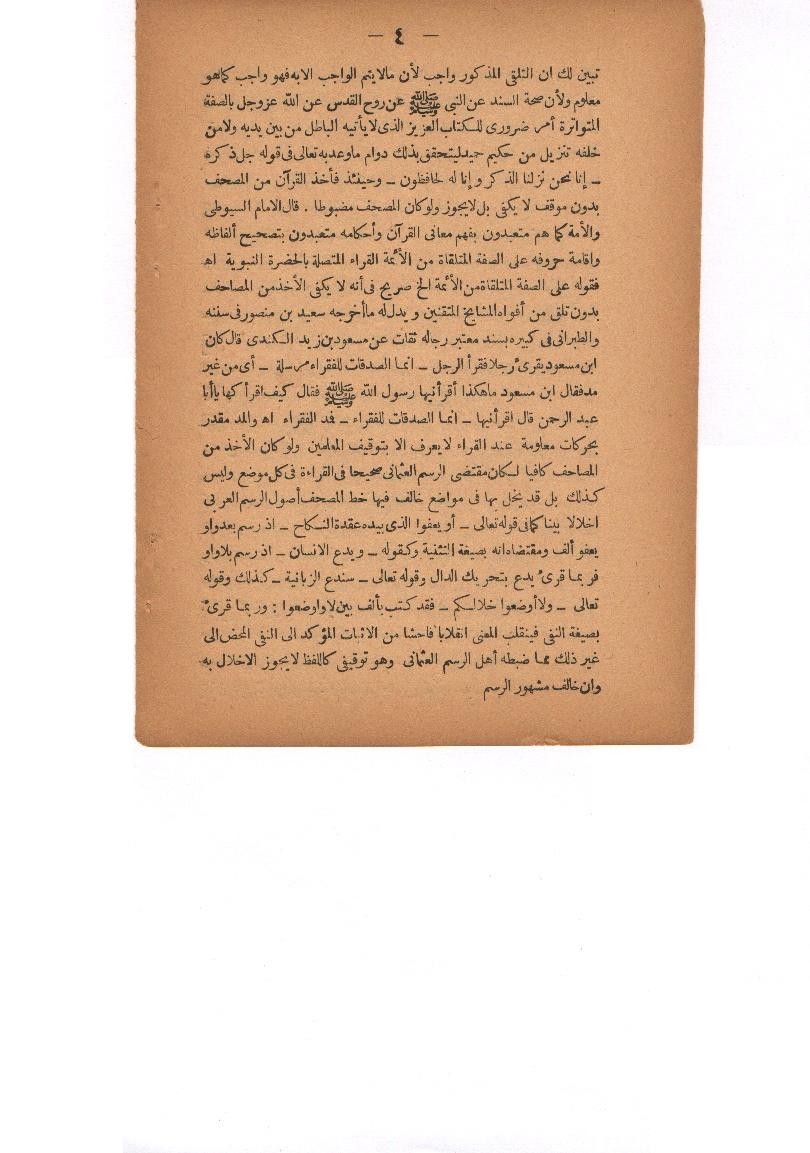 — ٤ —
تبين لك ان التلقى المذكور واجب لأن مالايتم الواجب الابه فهو واجب كماهو
معلوم ولأن صحة السند عن النبي ﷺ عن روح القدس عن الله عزوجل بالصفة
المتواترة أمر ضرورى للكتاب العزيز الذى لا يأتيه الباطل من بين يديه ولا من
خلفه تنزيل من حكيم حميد ليتحقق بذلك دوام ماوعدبه تعالى فى قوله جل ذكره
ــ إنا نحن نزلنا الذكر وإنا له لحافظون ــ وحينئذ فأخذ القرآن من المصحف
بدون موقف لا يكفى بل لايجوز ولوكان المصحف مضبوطا . قال الامام السيوطى
والأمة كما هم متعبدون بفهم معانى القرآن وأحكامه متعبدون بتصحيح ألفاظه
واقامة حروفه على الصفة المتلقاة من الأئمة القراء المتصلة بالحضرة النبوية اه
فقوله على الصفة المتلقاة من الأئمة الخ صريح فى أنه لا يكفى الأخذمن المصاحف
بدون تلق من أفواه المشايخ المتقنين ويدل له ماأخرجه سعيد بن منصور فى سننه
والطبرانى فى كبيره بسند معتبر رجاله ثقات عن مسعود بن زيد الكندى قال كان
ابن مسعود يقرئ رجلا فقرأ الرجل ــ انما الصدقات للفقراء مرسلة ــ أى من غير
مدفقال ابن مسعود ماهكذا أقرأنيها رسول الله ﷺ فقال كيف اقرأ كها ياأبا
عبد الرحمن قال اقرأنيها ــ انما الصدقات للفقراء ــ فمد الفقراء اه والمد مقدر
بحركات معلومة عند القراء لايعرف الا بتوقيف المعلمين ولوكان الأخذ من
المصاحف كافيا لكان مقتضى الرسم العثمانى صحيحا فى القراءة فى كل موضع وليس
كذلك بل قد يخل بها فى مواضع خالف فيها خط المصحف أصول الرسم العربى
اخلالا بينا كمافى قوله تعالى ــ أو يعفوا الذى بيده عقدة النكاح ــ اذ رسم بعدواو
يعفو ألف ومقتضاه انه بصيغة التثنية وكقوله ــ ويدع الانسان ــ اذ رسم بلا واو
فربما قرئ يدع بتحريك الدال وقوله تعالى ــ سندع الزبانية ــ كذلك وقوله
تعالى ــ ولاأوضعوا خلالكم ــ فقد كتب بألف بين لاواوضعوا : وربما قرئ
بصيغة النفى فينقلب المعنى انقلابا فاحشا من الاثبات المؤكد الى النفى المحض الى
غير ذلك مما ضبطه أهل الرسم العثمانى وهو توقيفى كاللفظ لايجوز الاخلال به
وان خالف مشهور الرسم